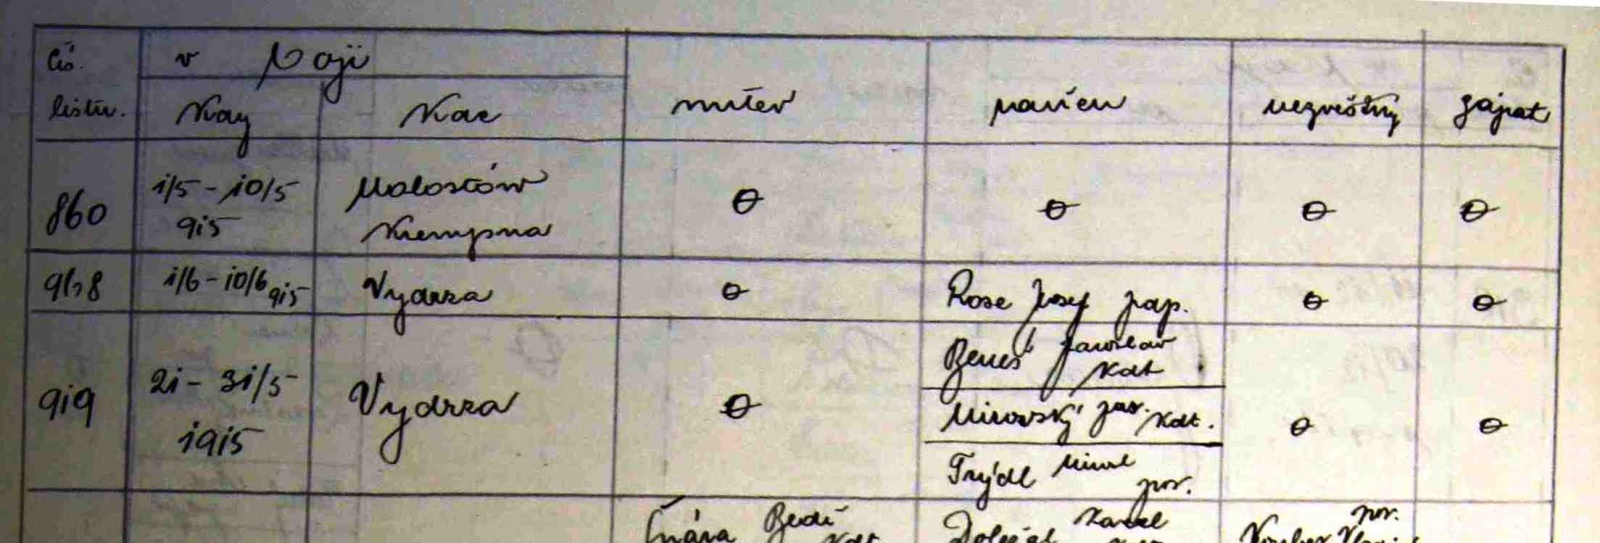 čís. listu. v boji
Kdy Kde mrtev raněn nezvěstný zajat
860 1/5 - 10/5 915 Malastów Krempna 0 0 0 0
1/6 - 10/6 915 Vydrza 0 Rose Josef 0 0
919 21 - 31/5 1915 Vydrza 0 Beneš Jaroslav Kdt. 0 0
Mirovský Jar. Kdt.
Trýdl por.
Karel por.